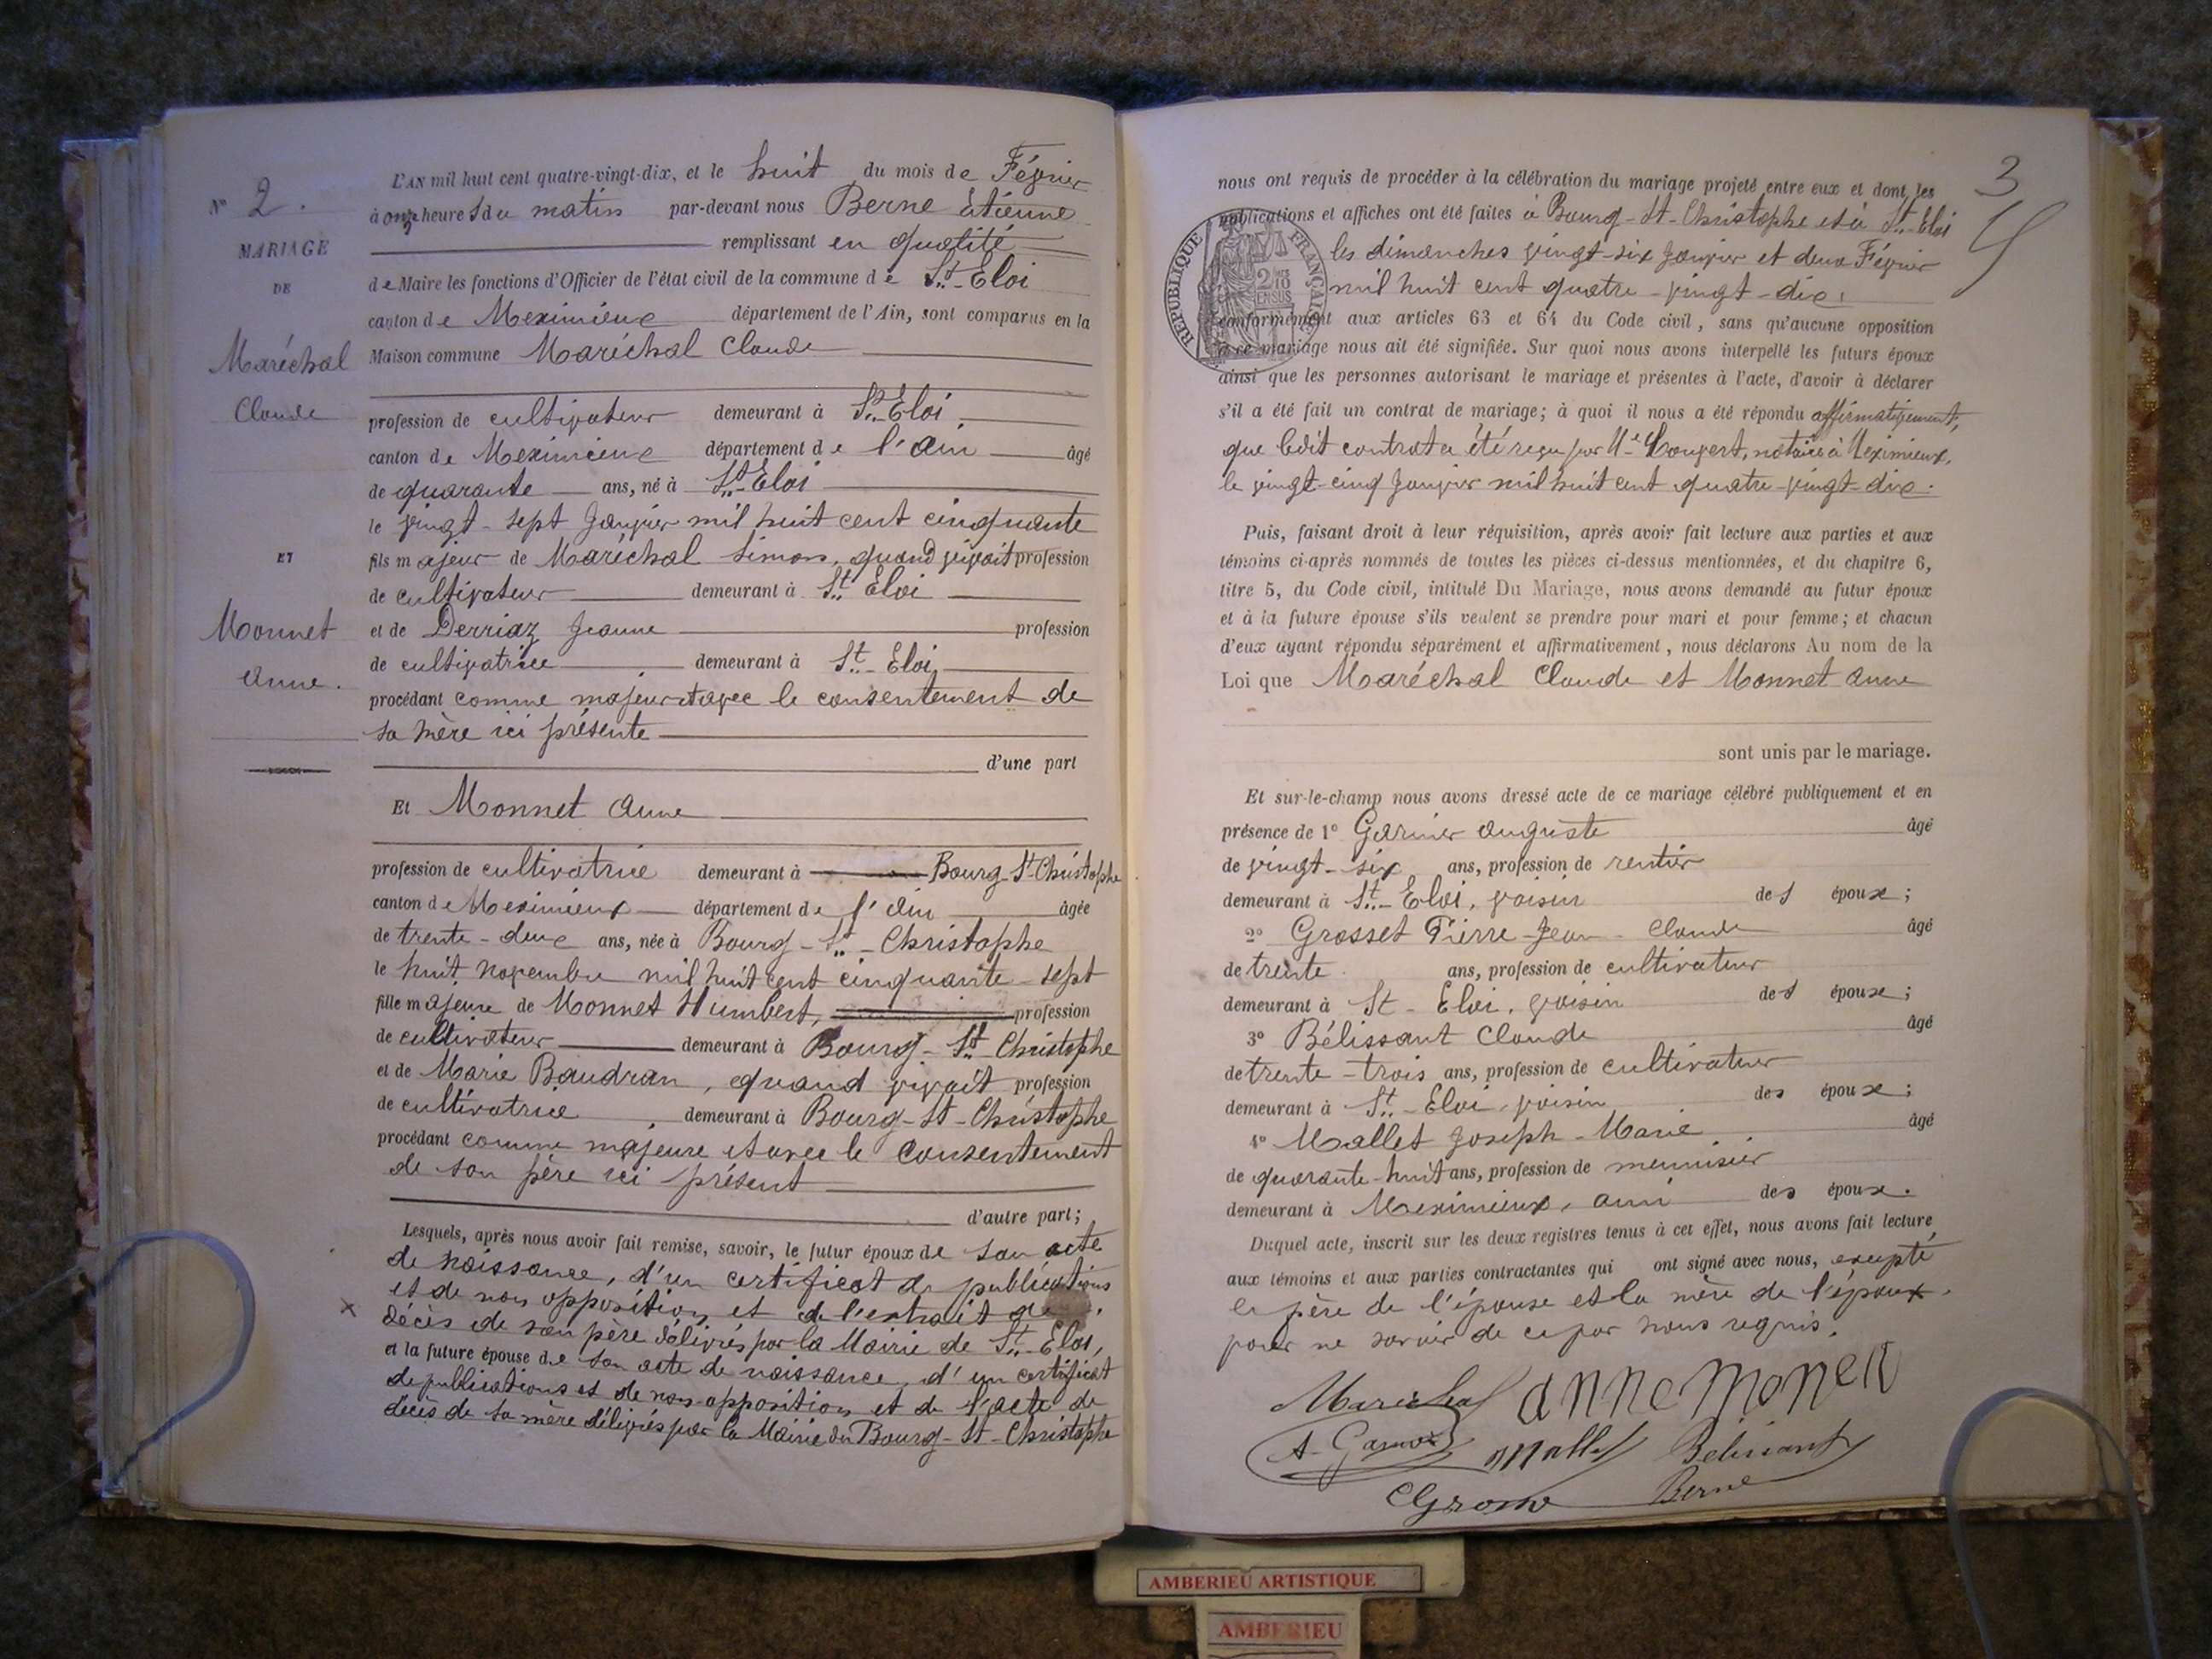 N° 2.
MARIAGE
DE
Maréchal
Claude
ET
Monnet
Anne.
L'AN mil huit cent quatre-vingt-dix, et le huit du mois de Février
à onze heures du matin par-devant nous Berne Etienne
remplissant en qualité
de Maire les fonctions d'Officier de l'état civil de la commune de St-Eloi
canton de Meximieux département de l'Ain, sont comparus en la
Maison commune Maréchal Claude
profession de cultivateur demeurant à St-Eloi
canton de Meximieux département de l'Ain âgé
de quarante ans, né à St-Eloi
le vingt-sept Janvier mil huit cent cinquante
fils majeur de Maréchal Simon, quand vivait profession
de cultivateur demeurant à St Eloi
et de Derriaz Jeanne profession
de cultivatrice demeurant à St-Eloi,
procédant comme majeur et avec le consentement de
sa mère ici présente
d'une part
Et Monnet Anne
profession de cultivatrice demeurant à Bourg-St-Christophe
canton de Meximieux département de l'Ain âgée
de trente-deux ans, née à Bourg-St-Christophe
le huit novembre mil huit cent cinquante-sept
fille majeure de Monnet Humbert, profession
de cultivateur demeurant à Bourg-St-Christophe
et de Marie Baudran, quand vivait profession
de cultivatrice, demeurant à Bourg-St-Christophe
procédant comme majeure et avec le consentement
de son père ici présent
d'autre part;
Lesquels, après nous avoir fait remise, savoir, le futur époux de son acte
de naissance, d'un certificat de publications
et de non opposition et de l'extrait de
x décès de son père délivrés par la Mairie de St-Eloi,
et la future épouse de son acte de naissance, d'un certificat
de publications et de non opposition et de l'acte de
décès de sa mère délivrés par la Mairie du Bourg-St-Christophe
3
nous ont requis de procéder à la célébration du mariage projeté entre eux et dont les
publications et affiches ont été faites à Bourg-St-Christophe et à St-Eloi
les dimanches vingt-six Janvier et deux Février
mil huit cent quatre-vingt-dix,
RÉPUBLIQUE FRANÇAISE
2/10 EN SUS
conformément aux articles 63 et 64 du Code civil, sans qu'aucune opposition
à ce mariage nous ait été signifiée. Sur quoi nous avons interpellé les futurs époux
ainsi que les personnes autorisant le mariage et présentes à l'acte, d'avoir à déclarer
s'il a été fait un contrat de mariage; à quoi il nous a été répondu affirmativement,
que ledit contrat a été reçu par Me notaire à Meximieux,
le vingt-cinq Janvier mil huit cent quatre-vingt-dix.
Puis, faisant droit à leur réquisition, après avoir fait lecture aux parties et aux
témoins ci-après nommés de toutes les pièces ci-dessus mentionnées, et du chapitre 6,
titre 5, du Code civil, intitulé Du Mariage, nous avons demandé au futur époux
et à la future épouse s'ils veulent se prendre pour mari et pour femme; et chacun
d'eux ayant répondu séparément et affirmativement, nous déclarons Au nom de la
Loi que Maréchal Claude et Monnet Anne
sont unis par le mariage.
Et sur-le-champ nous avons dressé acte de ce mariage célébré publiquement et en
présence de 1° Garnier Auguste âgé
de vingt-six ans, profession de rentier
demeurant à St-Eloi, voisin des époux;
2° Grosset Pierre-Jean-Claude âgé
de trente ans, profession de cultivateur
demeurant à St-Eloi, voisin des époux;
3° Bélissant Claude âgé
de trente-trois ans, profession de cultivateur
demeurant à St-Eloi, voisin des époux;
4° Mallet Joseph-Marie âgé
de quarante-huit ans, profession de menuisier
demeurant à Meximieux, ami des époux.
Duquel acte, inscrit sur les deux registres tenus à cet effet, nous avons fait lecture
aux témoins et aux parties contractantes qui ont signé avec nous, excepté
le père de l'épouse et la mère de l'époux,
pour ne savoir de ce par nous requis.
Maréchal anne monet
A. Garnier Mallet Belissant
Berne
AMBERIEU ARTISTIQUE
AMBERIEU